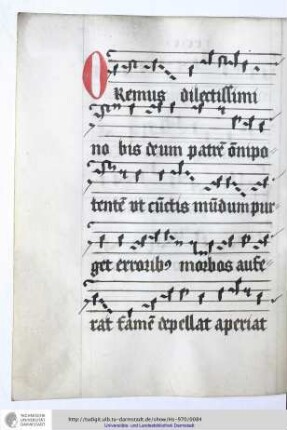 ORemus dilectissimi
no bis deum patrē ōnipo
tentē vt cūctis mūdum pur
get erroribꝰ morbos aufe
rat famē depellat aperiat
TECHNISCHE
UNIVERSITÄT
DARMSTADT
http://tudigit.ulb.tu-darmstadt.de/show/Hs-976/0084
Universitäts- und Landesbibliothek Darmstadt